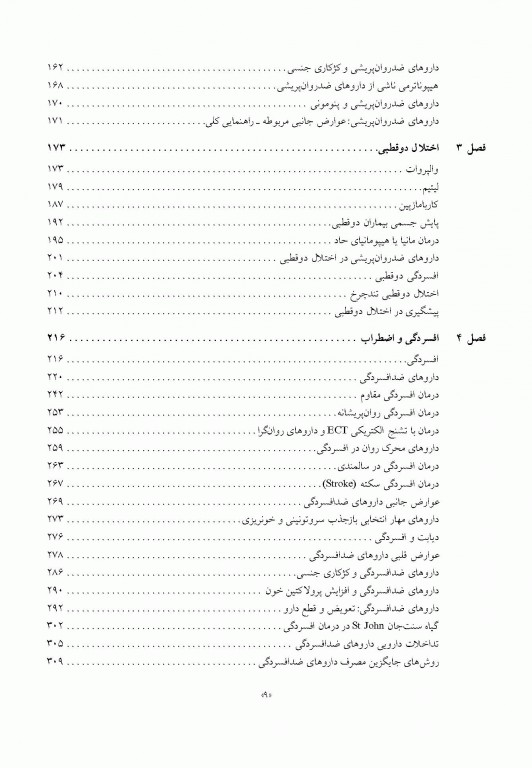 داروهای ضدروان‌پریشی و کژکاری جنسی ۱۶۲
هیپوناترمی ناشی از داروهای ضدروان‌پریشی ۱۶۸
داروهای ضدروان‌پریشی و پنومونی ۱۷۰
داروهای ضدروان‌پریشی: عوارض جانبی مربوطه ـ راهنمایی کلی ۱۷۱
فصل ۳ اختلال دوقطبی ۱۷۳
والپروات ۱۷۳
لیتیم ۱۷۹
کاربامازپین ۱۸۷
پایش جسمی بیماران دوقطبی ۱۹۲
درمان مانیا یا هیپومانیای حاد ۱۹۵
داروهای ضدروان‌پریشی در اختلال دوقطبی ۲۰۱
افسردگی دوقطبی ۲۰۴
اختلال دوقطبی تندچرخ ۲۱۰
پیشگیری در اختلال دوقطبی ۲۱۲
فصل ۴ افسردگی و اضطراب ۲۱۶
افسردگی ۲۱۶
داروهای ضدافسردگی ۲۲۰
درمان افسردگی مقاوم ۲۴۲
درمان افسردگی روان‌پریشانه ۲۵۳
درمان با تشنج الکتریکی ECT و داروهای روان‌گرا ۲۵۵
داروهای محرک روان در افسردگی ۲۵۹
درمان افسردگی در سالمندی ۲۶۳
درمان افسردگی سکته (Stroke) ۲۶۷
عوارض جانبی داروهای ضدافسردگی ۲۶۹
داروهای مهار انتخابی بازجذب سروتونینی و خونریزی ۲۷۳
دیابت و افسردگی ۲۷۶
عوارض قلبی داروهای ضدافسردگی ۲۷۸
داروهای ضدافسردگی و کژکاری جنسی ۲۸۶
داروهای ضدافسردگی و افزایش پرولاکتین خون ۲۹۰
داروهای ضدافسردگی: تعویض و قطع دارو ۲۹۲
گیاه سنت‌جان St John در درمان افسردگی ۳۰۲
تداخلات دارویی داروهای ضدافسردگی ۳۰۵
روش‌های جایگزین مصرف داروهای ضدافسردگی ۳۰۹
«۹»